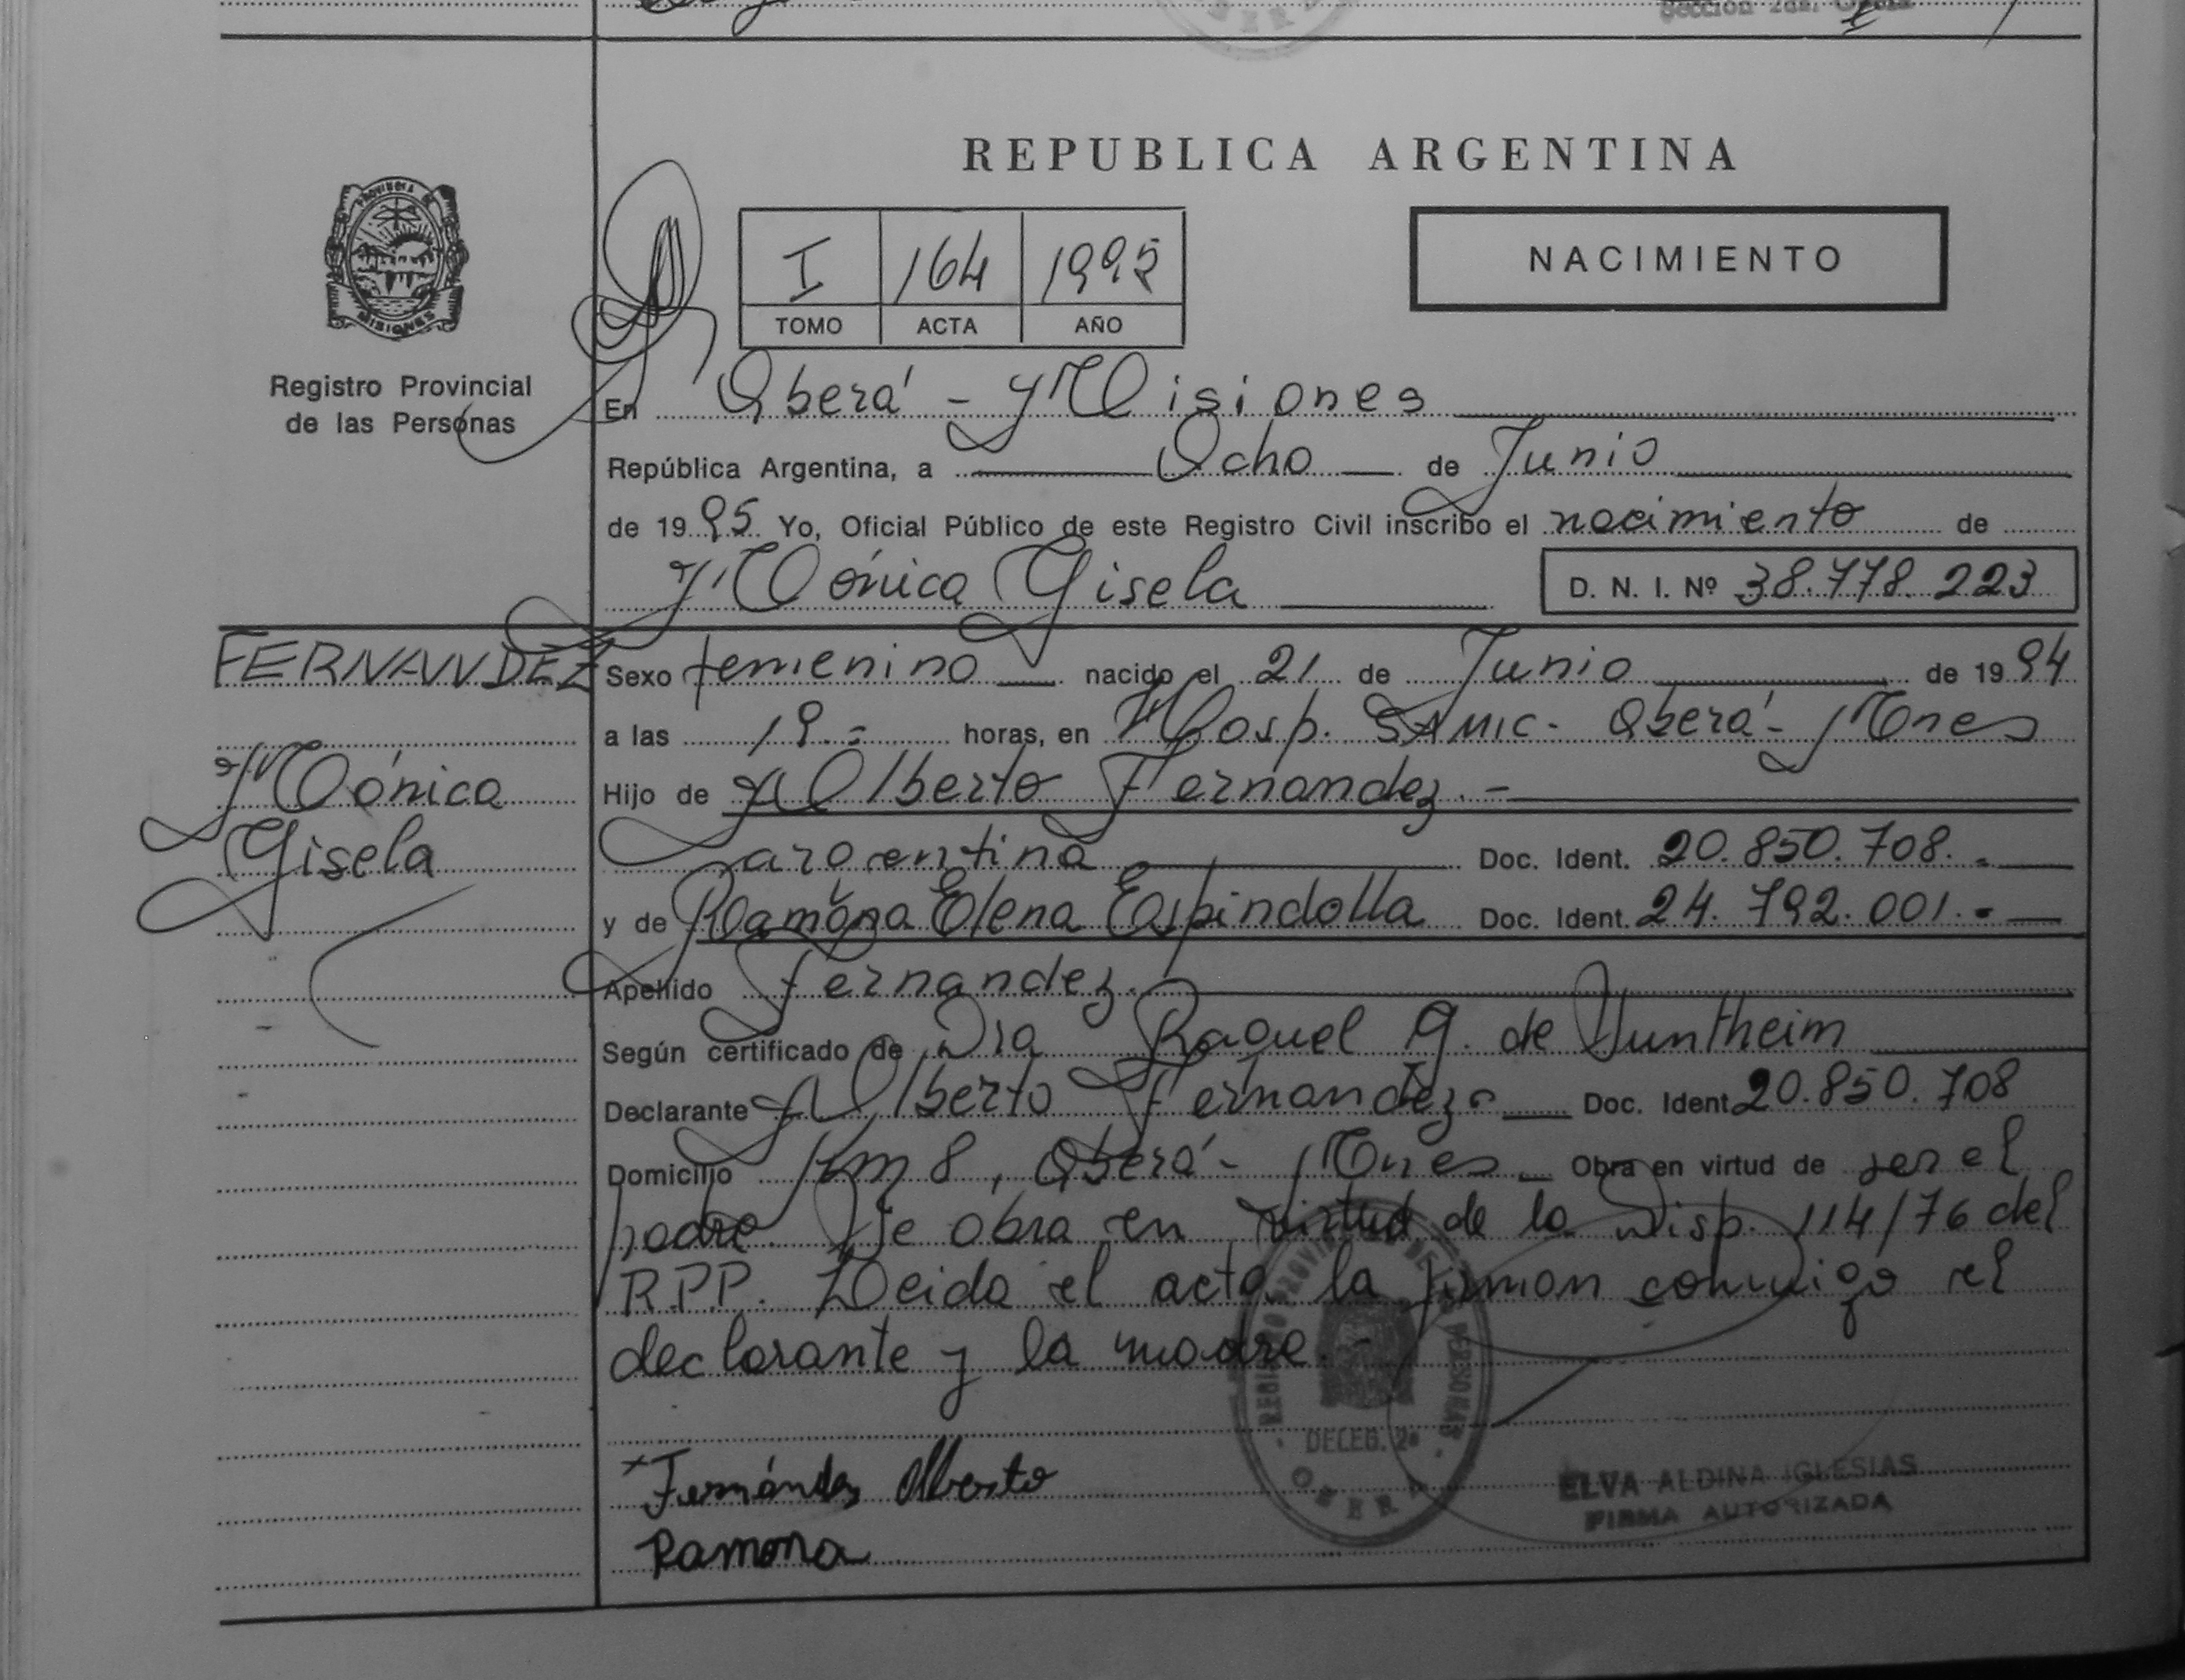 REPUBLICA ARGENTINA
PROVINCIA DE
MISIONES
Registro Provincial
de las Personas
I 164 1995
TOMO ACTA AÑO
NACIMIENTO
En Oberá - Misiones
República Argentina, a Ocho de Junio
de 1995 Yo, Oficial Público de este Registro Civil inscribo el nacimiento de
Mónica Gisela D. N. I. Nº 38.778.223
FERNANDEZ
Mónica
Gisela
Sexo femenino nacido el 21 de Junio de 1994
a las 19.- horas, en Hosp. SAMIC- Oberá- Mnes
Hijo de Alberto Fernandez.-
argentina Doc. Ident. 20.850.708.-
y de Ramona Elena Espindolla Doc. Ident. 24.792.001.-
Apellido Fernandez.
Según certificado de Dra Raquel G. de
Declarante Alberto Fernandez Doc. Ident 20.850.708
Domicilio Km 8, Oberá- Mnes Obra en virtud de ser el
padre. Se obra en virtud de la Disp. 114/76 del
R.P.P. Leida el acta la firman conmigo el
declarante y la madre.-
x Fernández Alberto
Ramona
REGISTRO PROVINCIAL DE LAS PERSONAS
DELEG. 2a
OBERA
ELVA ALDINA IGLESIAS
FIRMA AUTORIZADA